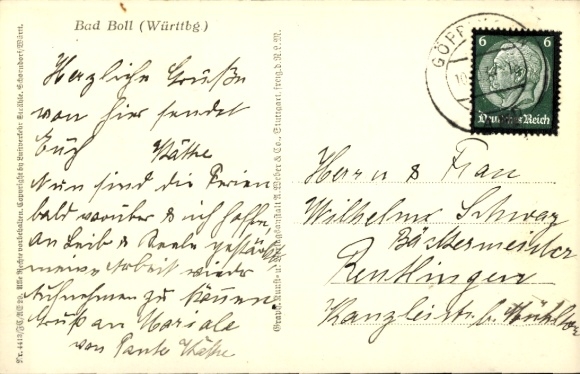 Bad Boll (Württbg)
Herzliche Grüße
von hier sendet
Euch Käthe
Nun sind die Ferien
bald vorüber & ich hoffe
an Leib & Seele gestärkt
meine Arbeit wieder
aufnehmen zu können
Gruß an Mariale
von Tante Käthe
Herrn & Frau
Wilhelm Schwarz
Bäckermeister
Reutlingen
Kanzleistr. b.
6 6
Deutsches Reich
GÖPP
Graph. Kunst- u. Verlagsanstalt A. Weber & Co., Stuttgart, freg. d. R.L.M.
Alle Rechte vorbehalten. Copyright by Luftverkehr Strähle, Schorndorf/Württ.